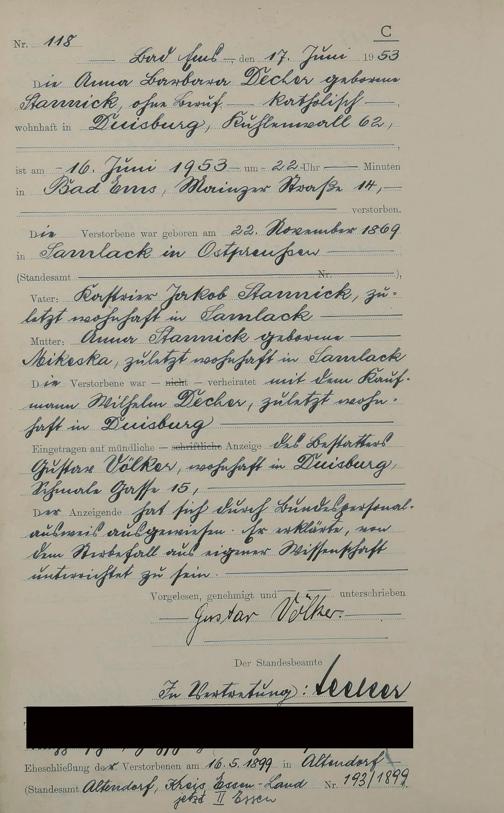 C
Nr. 118
Bad Ems, den 17. Juni 1953
Die Anna Barbara Decher geborene
Stannick, ohne Beruf — katholisch —,
wohnhaft in Duisburg, Kuhlenwall 62,
ist am 16. Juni 1953 um 22 Uhr — Minuten
in Bad Ems, Mainzer Straße 14,
verstorben.
Die Verstorbene war geboren am 22. November 1869
in Samlack in Ostpreußen
(Standesamt — Nr. —),
Vater: Jakob Stannick, zu-
letzt wohnhaft in Samlack
Mutter: Anna Stannick geborene
Mikoska, zuletzt wohnhaft in Samlack
Die Verstorbene war — nicht — verheiratet mit dem Kauf-
mann Wilhelm Decher, zuletzt wohn-
haft in Duisburg
Eingetragen auf mündliche — schriftliche Anzeige des Bestatters
Gustav Völker, wohnhaft in Duisburg,
Schmale Gasse 15,
Der Anzeigende hat sich durch Bundespersonal-
ausweis ausgewiesen. Er erklärte, von
dem Sterbefall aus eigener Wissenschaft
unterrichtet zu sein.
Vorgelesen, genehmigt und unterschrieben
Gustav Völker.
Der Standesbeamte
In Vertretung:
Eheschließung der Verstorbenen am 16.5.1899 in Altendorf
(Standesamt Altendorf, Kreis Essen-Land Nr. 193/1899
jetzt II Essen